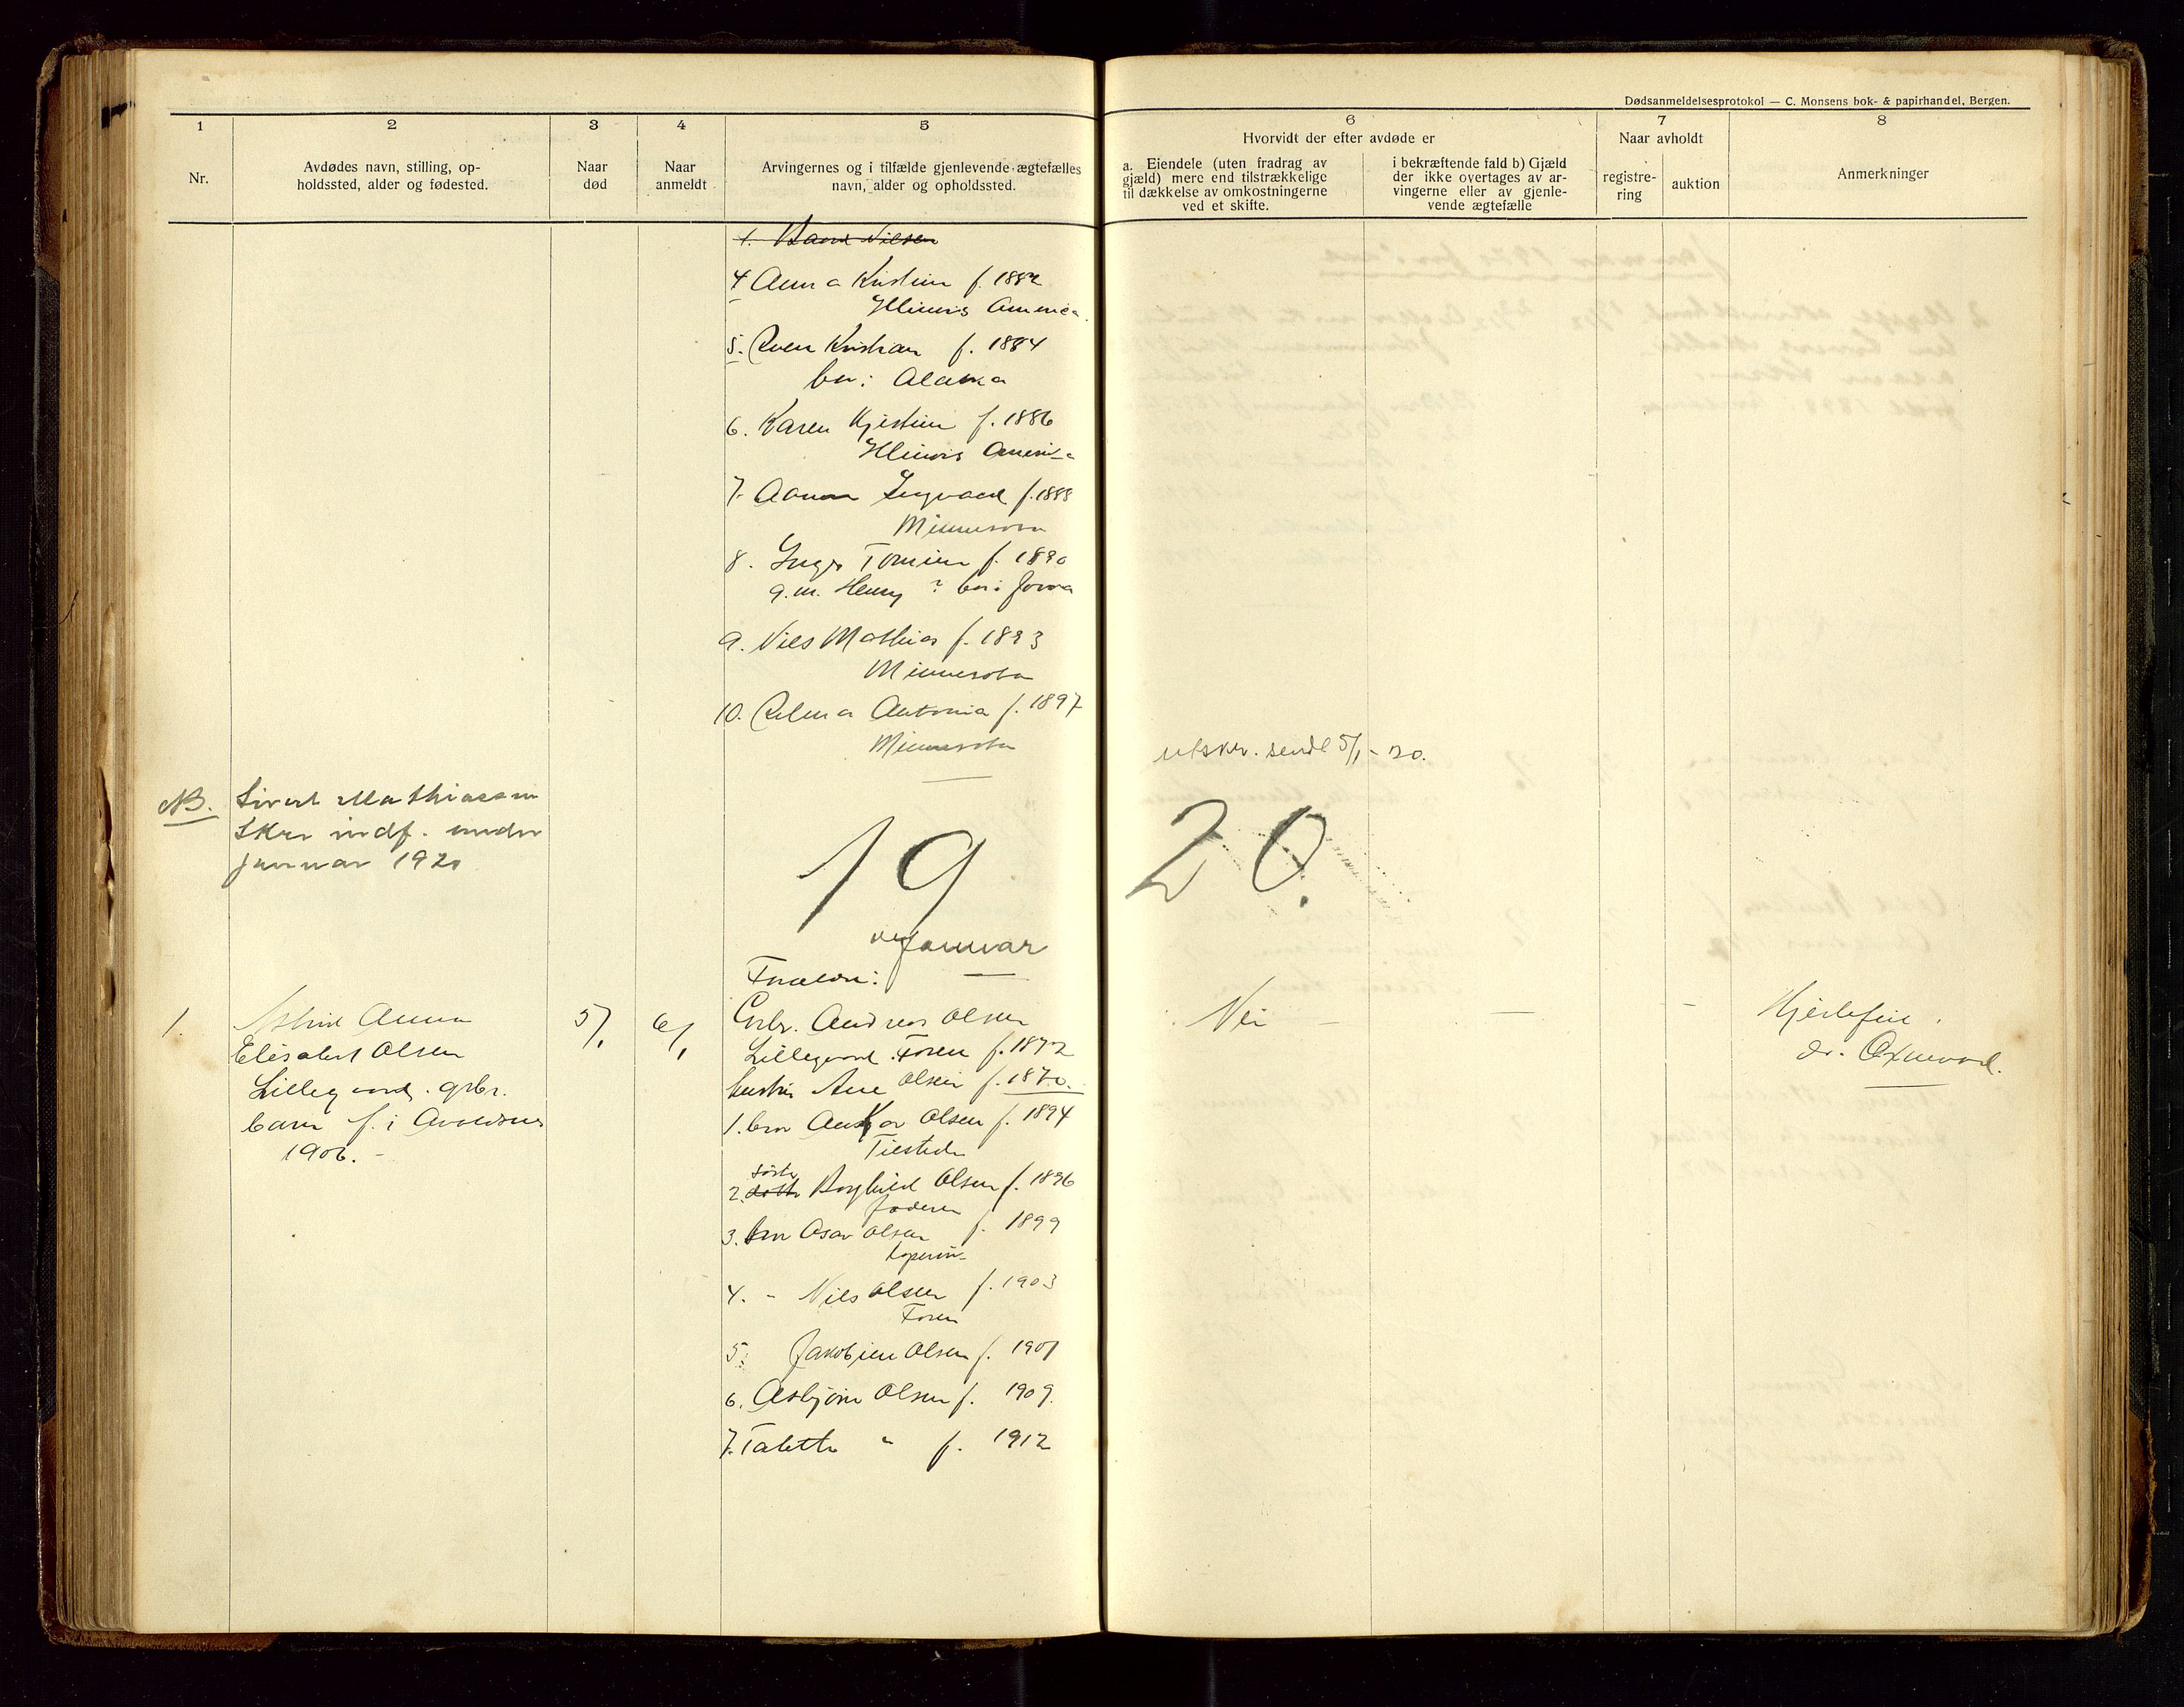 Dødsanmeldelsesprotokol — C. Monsens bok- & papirhandel, Bergen.
1 2 3 4 5 6 7 8
Nr.
Avdødes navn, stilling, op-
holdssted, alder og fødested.
Naar
død
Naar
anmeldt
Arvingernes og i tilfælde gjenlevende ægtefælles
navn, alder og opholdssted.
Hvorvidt der efter avdøde er
a. Eiendele (uten fradrag av
gjæld) mere end tilstrækkelige
til dækkelse av omkostningerne
ved et skifte.
i bekræftende fald b) Gjæld
der ikke overtages av ar-
vingerne eller av gjenle-
vende ægtefælle
Naar avholdt
registre-
ring
auktion
Anmerkninger
1. Nilsen
4 Anna Kristine f. 1882
Illinois America.
5. Sven Kristian f. 1884
bor i
6. Karen Kjestine f. 1886
Illinois America
7. Ingvald f. 1888
Minnesota
8. Inger Tomine f. 1890
g.m. Henry ? bor i Jowa
9. Nils Mathias f. 1893
Minnesota
10. Selma Antonia f. 1897
Minnesota
utskr. sendt 5/1-20.
NB. Sivert Mathiassen
Skre indf. under
januar 1920
1920.
Januar
Forældre:
1. Astrid Anna
Elisabet Olsen
Lillegaard. grbr.
barn f. i Avaldsnes
1906. -
5/1
6/1
Grbr. Andreas Olsen
Lillegaard f. 1872
hustru Ane Olsen f. 1870.
1. bror Olsen f. 1894
2. dotter søster Borghild Olsen f. 1896
Jæderen
3. bror Olsen f. 1899
Kopervik
4. - Nils Olsen f. 1903
5. Jakobine Olsen f. 1901
6. Asbjørn Olsen f. 1909.
7. Talette " f. 1912
Nei - — -
Hjertefeil.
dr.